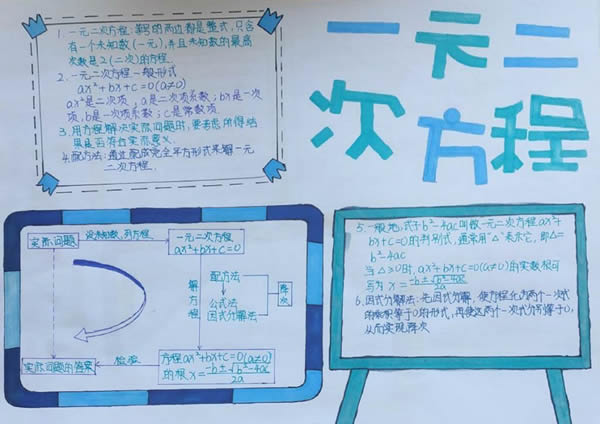 一元二
次方程
1.一元二次方程:等号的两边都是整式,只含
有一个未知数(一元),并且未知数的最高
次数是2(二次)的方程.
2.一元二次方程一般形式
ax²+bx+c=0(a≠0)
ax²是二次项,a是二次项系数;bx是一次
项,b是一次项系数;c是常数项.
3.用方程解决实际问题时,要考虑所得结
果是否符合实际意义.
4.配方法:通过配成完全平方形式来解一元
二次方程.
实际问题
设未知数,列方程
一元二次方程
ax²+bx+c=0
解方程
配方法
公式法
因式分解法
降次
方程ax²+bx+c=0(a≠0)
的根x=(-b±√(b²-4ac))/2a
检验
实际问题的答案
5.一般地,式子b²-4ac叫做一元二次方程ax²+
bx+c=0的判别式,通常用"△"表示它,即△=
b²-4ac
当△≥0时,ax²+bx+c=0(a≠0)的实数根可
写为x=(-b±√(b²-4ac))/2a
6.因式分解法:先因式分解,使方程化为两个一次式
的乘积等于0的形式,再使这两个一次式分别等于0,
从而实现降次